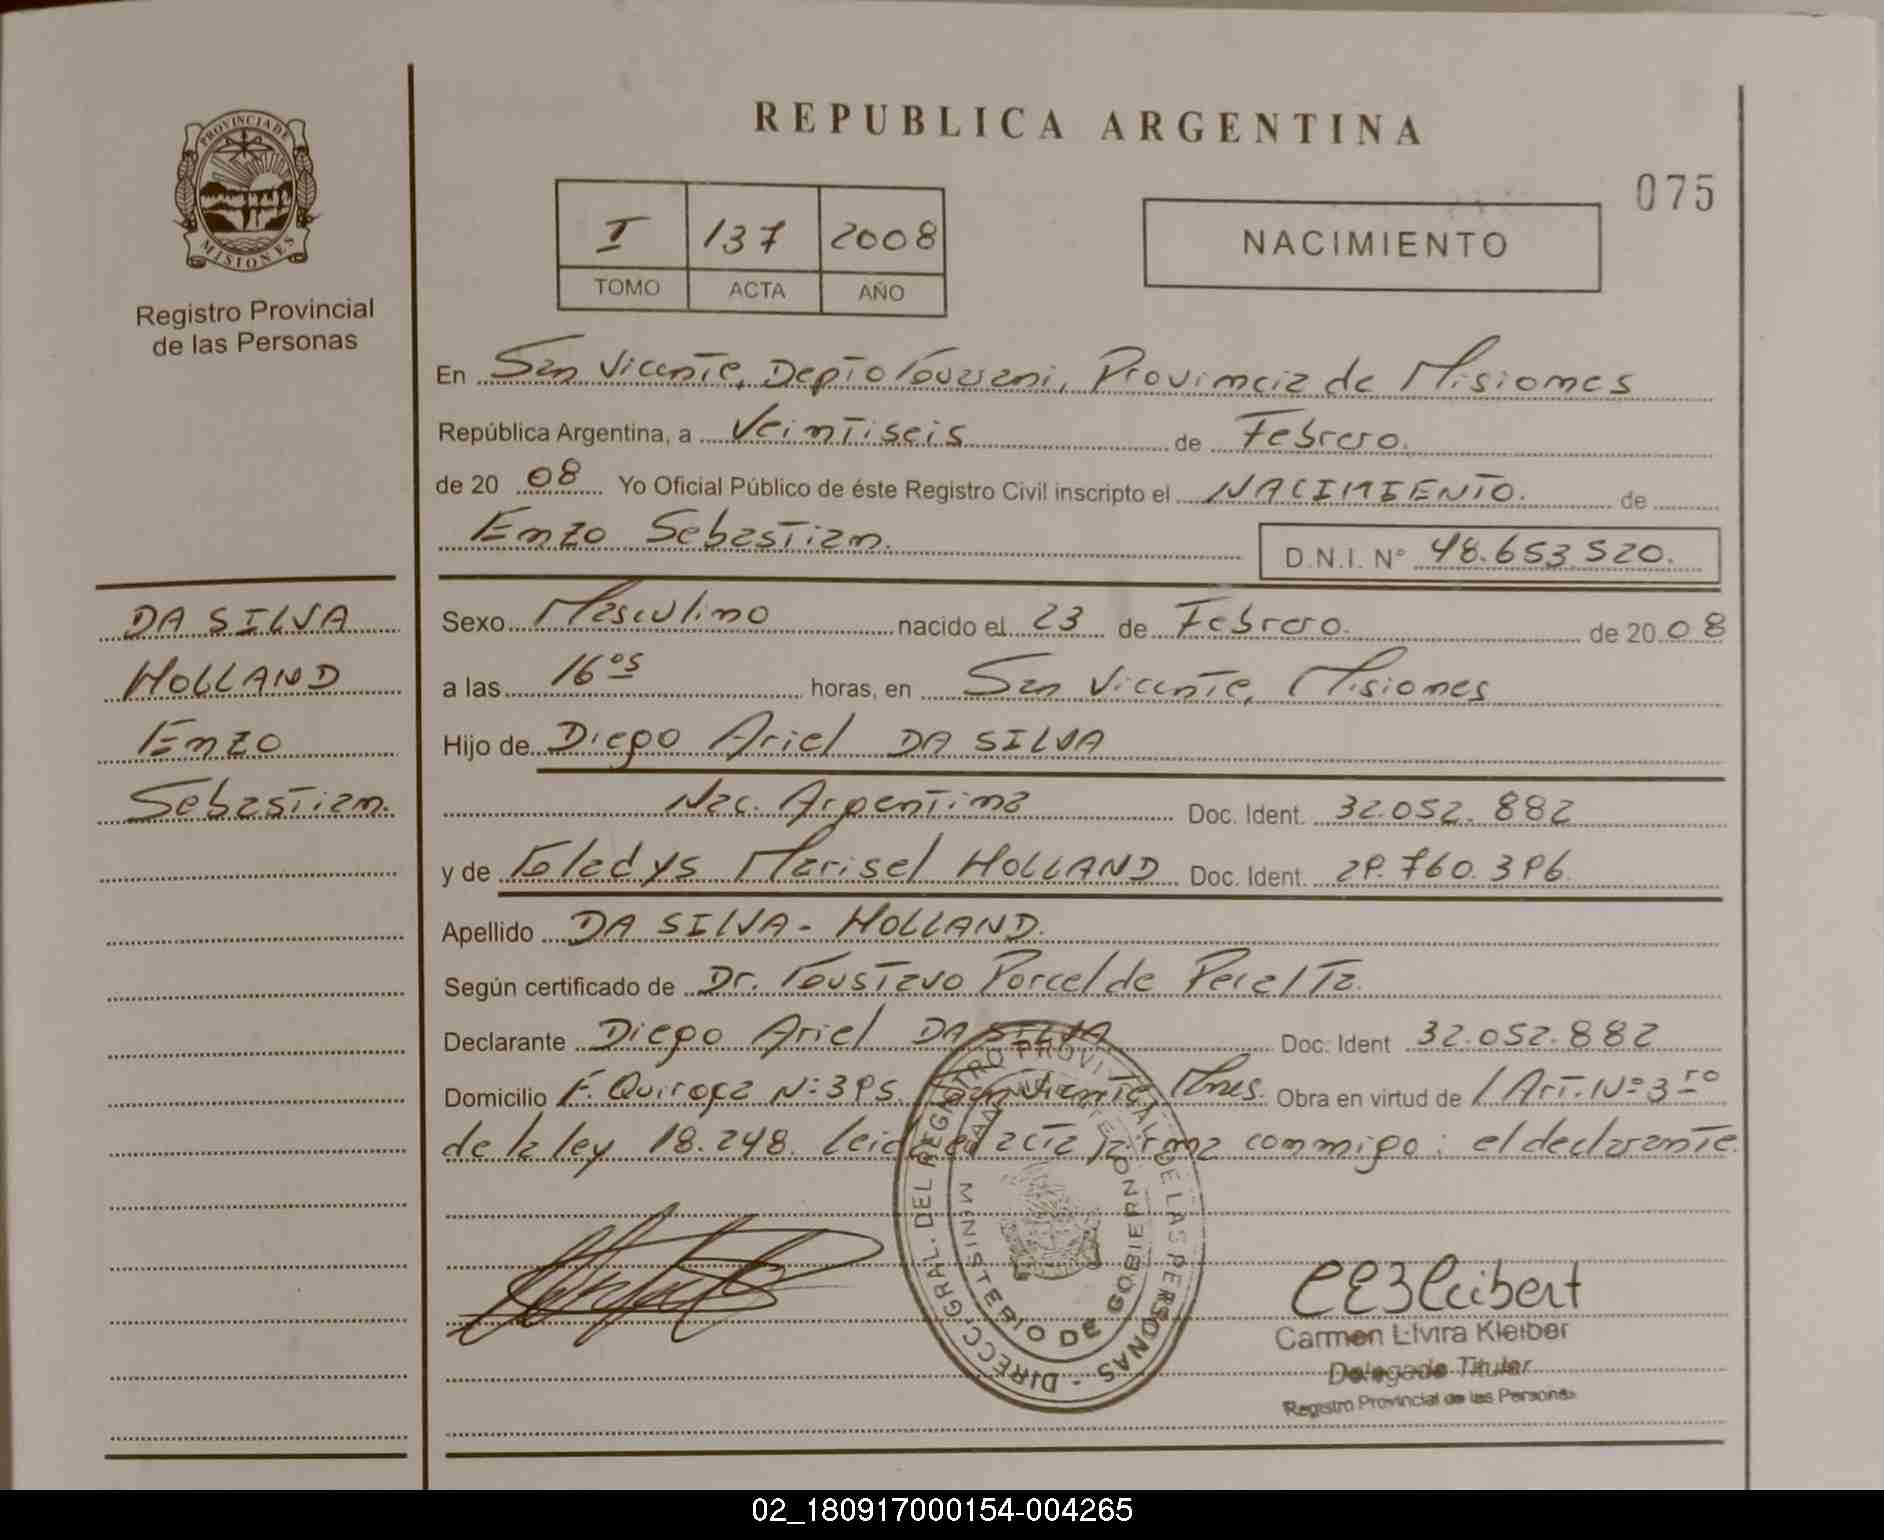 REPUBLICA ARGENTINA
075
PROVINCIA DE
MISIONES
Registro Provincial
de las Personas
I 137 2008
TOMO ACTA AÑO
NACIMIENTO
En San Vicente, Depto Guarani, Provincia de Misiones
República Argentina, a Veintiseis de Febrero.
de 20 08 Yo Oficial Público de éste Registro Civil inscripto el NACIMIENTO. de
Enzo Sebastian. D.N.I. N° 48.653.520.
DA SILVA
HOLLAND
Enzo
Sebastian.
Sexo Masculino nacido el 23 de Febrero. de 20 08
a las 16 05 horas, en San Vicente, Misiones
Hijo de Diego Ariel DA SILVA
Nac. Argentina Doc. Ident. 32.052.882
y de Gladys Marisel HOLLAND Doc. Ident. 29.760.396.
Apellido DA SILVA - HOLLAND.
Según certificado de Dr. Gustavo Porcel de Peralta.
Declarante Diego Ariel DA SILVA Doc. Ident 32.052.882
Domicilio F. Quiroga N: 395. San Vicente Mnes. Obra en virtud de / Art. N° 3ro
de la ley 18.248. Leida el acta firma conmigo: el declarante.
DIRECC. GRAL. DEL REGISTRO PROVINCIAL DE LAS PERSONAS -
MINISTERIO DE GOBIERNO
CEKleibert
Carmen Elvira Kleiber
Delegado Titular
Registro Provincial de las Personas
02_180917000154-004265